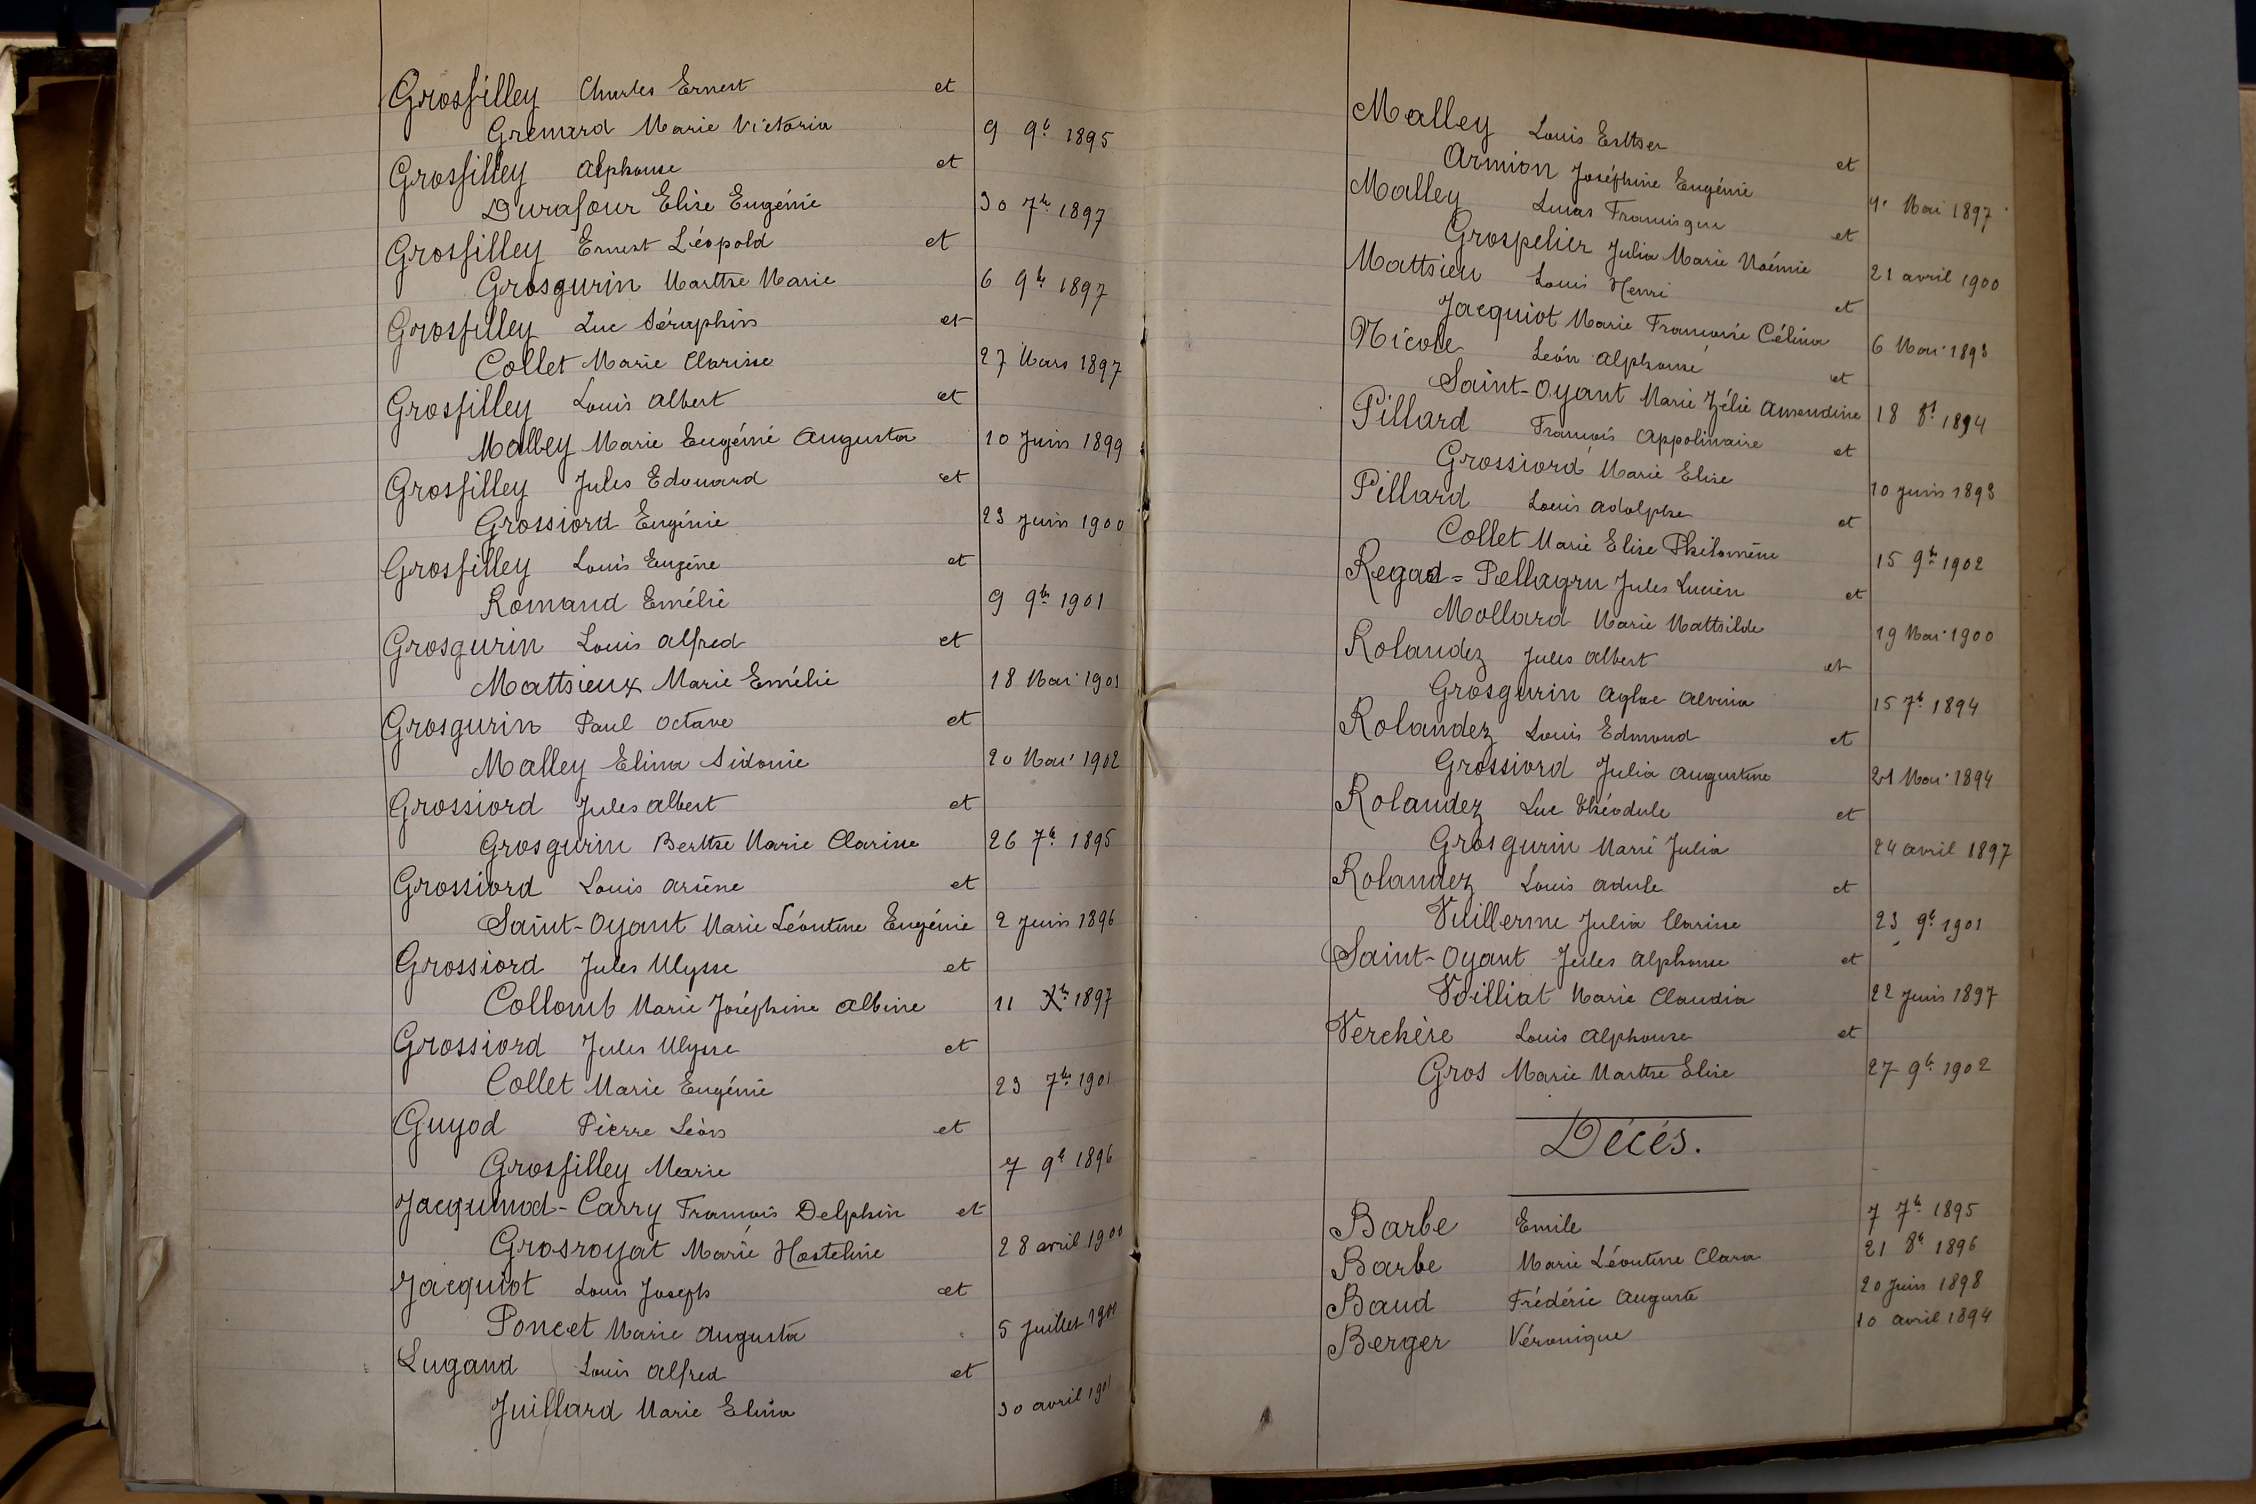 Grosfilley Charles Ernest et
Gremard Marie Victoria 9 9b 1895
Grosfilley Alphonse et
Durafour Elise Eugénie 30 7b 1897
Grosfilley Ernest Léopold et
Grosgurin Marthe Marie 6 9b 1897
Grosfilley Luc Séraphin et
Collet Marie Clarisse 27 Mars 1897
Grosfilley Louis Albert et
Malley Marie Eugénie Augusta 10 Juin 1899
Grosfilley Jules Edouard et
Grossiord Eugénie 23 Juin 1900
Grosfilley Louis Eugène et
Romand Emélie 9 9b 1901
Grosgurin Louis Alfred et
Matthieux Marie Emélie 18 Mai 1901
Grosgurin Paul Octave et
Malley Elina Sidonie 20 Mai 1902
Grossiord Jules Albert et
Grosgurin Berthe Marie Clarisse 26 7b 1895
Grossiord Louis Arsène et
Saint-Oyant Marie Léontine Eugénie 2 Juin 1896
Grossiord Jules Ulysse et
Collomb Marie Joséphine Albine 11 Xb 1897
Grossiord Jules Ulysse et
Collet Marie Eugénie 23 7b 1901
Guyod Pierre Léon et
Grosfilley Marie 7 9b 1896
Jacquinod-Carry François Delphin et
Grosroyat Marie 28 avril 1900
Jacquiot Louis Joseph et
Poncet Marie Augusta 5 Juillet
Lugand Louis Alfred et
Juillard Marie Elina 30 avril 1901
Malley Louis Esther et
Armion Joséphine Eugénie Mai 1897
Malley Lucas Francisque et
Grospelier Julia Marie Noémie 21 avril 1900
Matthieu Louis Henri et
Jacquiot Marie Françoise Célina 6 Mai 1893
Nicole Léon Alphonse et
Saint-Oyant Marie Zélie Amandine 18 8b 1894
Pillard François Appolinaire et
Grossiord Marie Elise 10 Juin 1893
Pillard Louis Adolphe et
Collet Marie Elise Philomène 15 9b 1902
Regad=Pellagru Jules Lucien et
Mollard Marie Mathilde 19 Mai 1900
Rolandez Jules Albert et
Grosgurin Aglae Alvina 15 7b 1894
Rolandez Louis Edmond et
Grossiord Julia Augustine 21 Mai 1894
Rolandez Luc Théodule et
Grosgurin Marie Julia 24 avril 1897
Rolandez Louis Adule et
Vuillerme Julia Clarisse 23 9b 1901
Saint-Oyant Jules Alphonse et
Voilliat Marie Claudia 22 Juin 1897
Verchère Louis Alphonse et
Gros Marie Marthe Elise 27 9b 1902
Décés.
Barbe Emile 7 7b 1895
Barbe Marie Léontine Clara 21 8b 1896
Baud Frédéric Auguste 20 Juin 1898
Berger Véronique 10 avril 1894